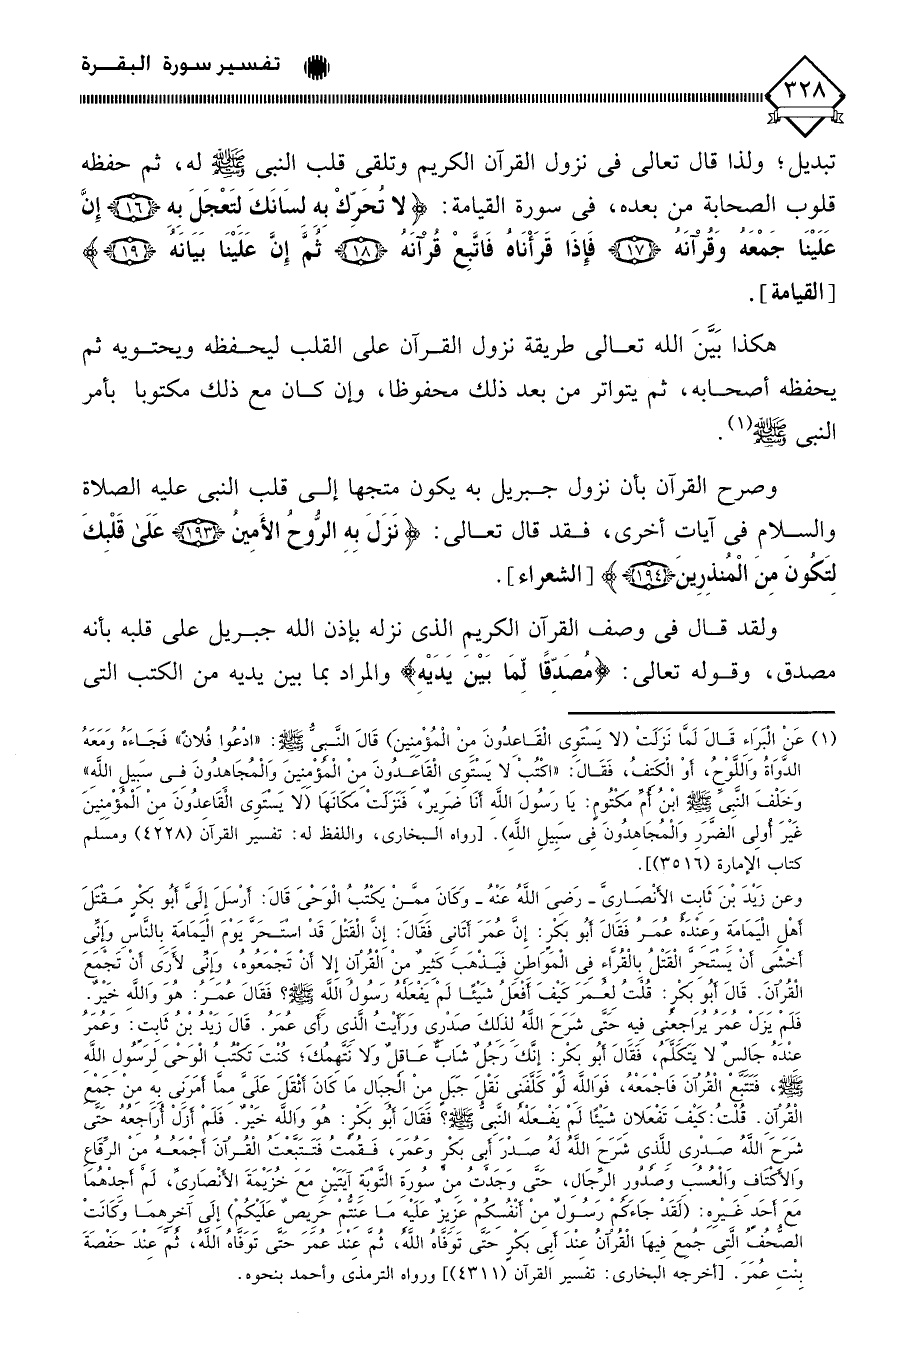 ٣٢٨
تفسير سورة البقــرة
تبديل؛ ولذا قال تعالى فى نزول القرآن الكريم وتلقى قلب النبى ﷺ له، ثم حفظه
قلوب الصحابة من بعده، فى سورة القيامة: ﴿ لا تُحَرِّكْ بِهِ لِسَانَكَ لِتَعْجَلَ بِهِ ﴿١٦﴾ إِنَّ
عَلَيْنَا جَمْعَهُ وَقُرْآنَهُ ﴿١٧﴾ فَإِذَا قَرَأْنَاهُ فَاتَّبِعْ قُرْآنَهُ ﴿١٨﴾ ثُمَّ إِنَّ عَلَيْنَا بَيَانَهُ ﴿١٩﴾ ﴾
[القيامة].
هكذا بَيَّنَ الله تعـالى طريقة نزول القـرآن على القلب ليحـفظه ويحتـويه ثم
يحفظه أصحـابه، ثم يتواتر من بعد ذلك محفوظا، وإن كـان مع ذلك مكتوبا بأمر
النبى ﷺ(١).
وصرح القرآن بأن نزول جـبريل به يكون متجها إلـى قلب النبى عليه الصلاة
والسـلام فى آيات أخرى، فـقد قال تعـالى: ﴿ نَزَلَ بِهِ الرُّوحُ الأَمِينُ ﴿١٩٣﴾ عَلَىٰ قَلْبِكَ
لِتَكُونَ مِنَ الْمُنذِرِينَ ﴿١٩٤﴾ ﴾ [الشعراء].
ولقد قـال فى وصف القرآن الكريم الذى نزله بإذن الله جبـريل على قلبه بأنه
مصدق، وقـوله تعالى: ﴿مُصَدِّقًا لِّمَا بَيْنَ يَدَيْهِ﴾ والمراد بما بين يديه من الكتب التى
(١) عَنْ الْبَرَاءِ قَـالَ لَمَّا نَزَلَتْ (لا يَسْتَوِى الْقَـاعِدُونَ مِنْ الْمُؤْمِنِينَ) قَالَ النَّـبِىُّ ﷺ: «ادْعُوا فُلانً» فَجَـاءَهُ وَمَعَهُ
الدَّوَاةُ وَاللَّوْحُ، أَوْ الْكَتِفُ، فَقَـالَ: «اكْتُبْ لا يَسْتَوِى الْقَاعِـدُونَ مِنْ الْمُؤْمِنِينَ وَالْمُجَاهِدُونَ فِـى سَبِيلِ اللَّهِ»
وَخَلْفَ النَّبِىِّ ﷺ ابْنُ أُمِّ مَكْتُومٍ: يَا رَسُولَ اللَّهِ أَنَا ضَرِيرٌ، فَنَزَلَتْ مَكَانَهَا (لا يَسْتَوِى الْقَاعِدُونَ مِنْ الْمُؤْمِنِينَ
غَيْرَ أُولِى الضَّرَرِ وَالْمُجَاهِدُونَ فِى سَبِيلِ اللَّهِ). [رواه الـبخارى، واللفظ له: تفسير القرآن (٤٢٢٨) ومسلم
كتاب الإمارة (٣٥١٦)].
وعن زَيْدَ بْنَ ثَابِتٍ الأَنْصَارِىَّ ـ رَضِىَ اللَّهُ عَنْهُ ـ وَكَانَ مِمَّـنْ يَكْتُبُ الْوَحْىَ قَالَ: أَرْسَلَ إِلَىَّ أَبُو بَكْرٍ مَـقْتَلَ
أَهْلِ الْيَمَامَةِ وَعِنْدَهُ عُمَـرُ فَقَالَ أَبُو بَكْرٍ: إِنَّ عُمَرَ أَتَانِى فَقَالَ: إِنَّ الْقَتْلَ قَدْ اسْتَـحَرَّ يَوْمَ الْيَمَامَةِ بِالنَّاسِ وَإِنِّى
أَخْشَى أَنْ يَسْتَحِرَّ الْقَتْلُ بِالْقُرَّاءِ فِى الْمَوَاطِنِ فَيَـذْهَبَ كَثِيرٌ مِنْ الْقُرْآنِ إِلا أَنْ تَجْمَعُوهُ، وَإِنِّى لأَرَى أَنْ تَجْمَعَ
الْقُرْآنَ. قَالَ أَبُو بَكْرٍ: قُلْتُ لِعُمَرَ كَيْفَ أَفْعَلُ شَيْئًـا لَمْ يَفْعَلْهُ رَسُولُ اللَّهِ ﷺ؟ فَقَالَ عُمَـرُ: هُوَ وَاللَّهِ خَيْرٌ.
فَلَمْ يَزَلْ عُمَرُ يُرَاجِعُنِى فِيهِ حَتَّى شَرَحَ اللَّهُ لِذَلِكَ صَدْرِى وَرَأَيْتُ الَّذِى رَأَى عُمَرُ. قَالَ زَيْدُ بْنُ ثَابِتٍ: وَعُمَرُ
عِنْدَهُ جَالِسٌ لا يَتَكَلَّمُ، فَقَالَ أَبُو بَكْرٍ: إِنَّكَ رَجُلٌ شَابٌّ عَـاقِلٌ وَلا نَتَّهِمُكَ؛ كُنْتَ تَكْتُبُ الْوَحْىَ لِرَسُولِ اللَّهِ
ﷺ، فَتَتَبَّعْ الْقُرْآنَ فَاجْمَعْهُ، فَوَاللَّهِ لَوْ كَلَّفَنِى نَقْلَ جَبَلٍ مِنْ الْجِبَالِ مَا كَانَ أَثْقَلَ عَلَىَّ مِمَّا أَمَرَنِى بِهِ مِنْ جَمْعِ
الْقُرْآنِ. قُلْتُ: كَيْفَ تَفْعَلانِ شَيْئًا لَمْ يَفْـعَلْهُ النَّبِىُّ ﷺ؟ فَقَالَ أَبُو بَكْرٍ: هُوَ وَاللَّهِ خَيْرٌ. فَلَمْ أَزَلْ أُرَاجِعُهُ حَتَّى
شَرَحَ اللَّهُ صَـدْرِى لِلَّذِى شَرَحَ اللَّهُ لَهُ صَدْرَ أَبِى بَكْرٍ وَعُمَرَ، فَـقُمْتُ فَتَتَبَّعْتُ الْقُـرْآنَ أَجْمَعُـهُ مِنْ الرِّقَاعِ
وَالأَكْتَافِ وَالْعُسُبِ وَصُدُورِ الرِّجَالِ، حَتَّى وَجَدْتُ مِنْ سُورَةِ التَّوْبَةِ آيَتَيْنِ مَعَ خُزَيْمَةَ الأَنْصَارِىِّ، لَمْ أَجِدْهُمَا
مَعَ أَحَدٍ غَـيْرِهِ: (لَقَدْ جَاءَكُمْ رَسُـولٌ مِنْ أَنْفُسِكُمْ عَزِيزٌ عَلَيْهِ مَـا عَنِتُّمْ حَرِيصٌ عَلَيْكُمْ) إِلَى آخِرِهِمَـا وَكَانَتْ
الصُّحُفُ الَّتِى جُمِعَ فِيهَا الْقُرْآنُ عِنْدَ أَبِى بَكْرٍ حَتَّى تَوَفَّاهُ اللَّهُ، ثُمَّ عِنْدَ عُمَرَ حَتَّى تَوَفَّاهُ اللَّهُ، ثُمَّ عِنْدَ حَفْصَةَ
بِنْتِ عُمَرَ. [أخرجه البخارى: تفسير القرآن (٤٣١١)] ورواه الترمذى وأحمد بنحوه.